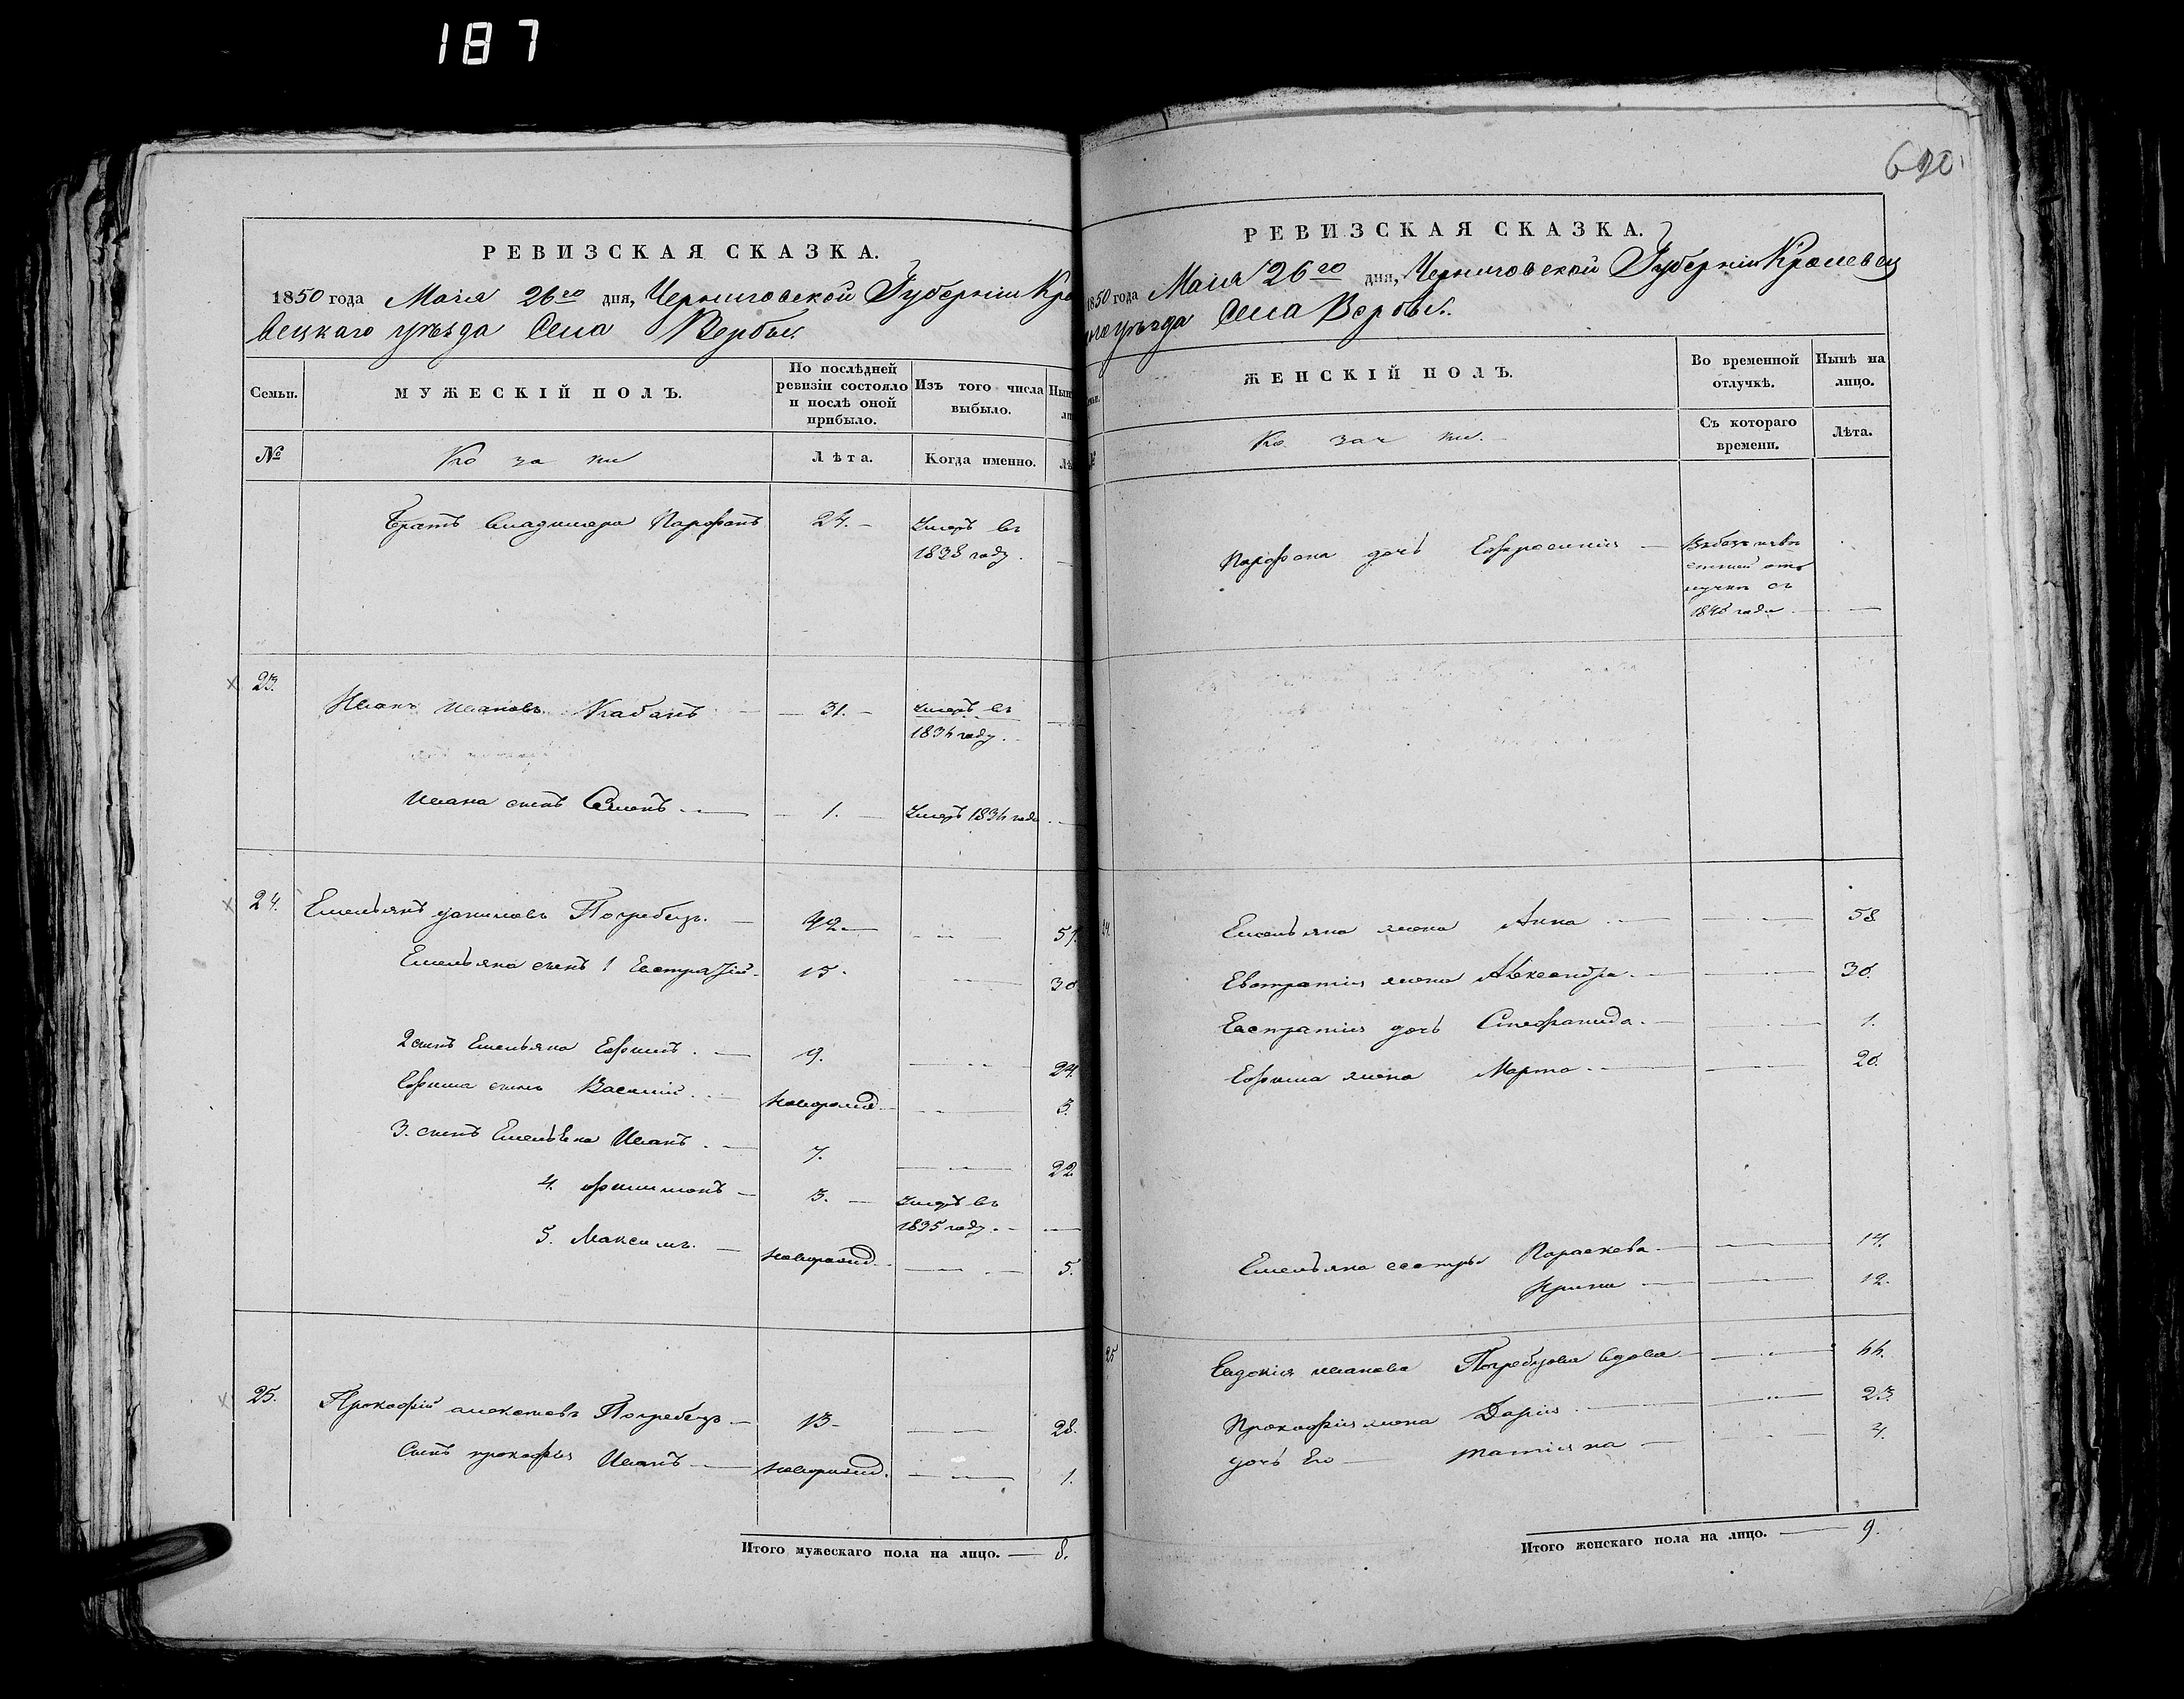 187
620
РЕВИЗСКАЯ СКАЗКА.
1850 года Маія 26го дня, Черниговской Губерніи Кро
вецкаго уѣзда Села Вербы
Семьи.
МУЖЕСКІЙ ПОЛЪ.
По послѣдней
ревизіи состояло
и послѣ оной
прибыло.
Изъ того числа
выбыло.
№
Ко за ки
Лѣта.
Когда именно.
Братъ Владимера Парфонъ 24. Умеръ въ
1838 году.
23.
Иванъ Ивановъ Кабанъ 31. Умеръ въ
1834 году.
Ивана сынъ Семенъ 1. Умеръ 1834 года
24. Емельянъ Даниловъ Погребецъ. 42 57.
Емельяна сынъ 1 Евстратій 15. 30
2 сынъ Емельяна Ефимъ. 9. 24.
Ефима сынъ Василій. новорожд. 3.
3. сынъ Емельяна Иванъ. 7. 22.
4. Филимонъ 3. Умеръ въ
1835 году.
5. Максимъ. новорожд. 5.
25. Прокофій Алексѣевъ Погребецъ 13 28.
Сынъ Прокофія Иванъ новорожд. 1.
Итого мужескаго пола на лицо. 8.
РЕВИЗСКАЯ СКАЗКА.
1850 года Маія 26го дня, Черниговской Губерніи Кролевец
каго уѣзда Села Вербы.
ЖЕНСКІЙ ПОЛЪ.
Во временной
отлучкѣ.
Нынѣ на
лицо.
Ко зач ки.
Съ котораго
времени.
Лѣта.
Парфона дочь Евфросинія Въ безъизвѣ
стной отъ
лучкѣ съ
1846 года
24. Емельяна жена Анна 58
Евстратія жена Александра. 30.
Евстратія дочь Стефанида. 1.
Ефима жена Марта. 20.
Емельяна сестры Параскева 14.
Ирина 12.
25 Евдокія Иванова Погребцова вдова 44.
Прокофія жена Дарія 23.
дочь Его Татіяна 4.
Итого женскаго пола на лицо. 9.